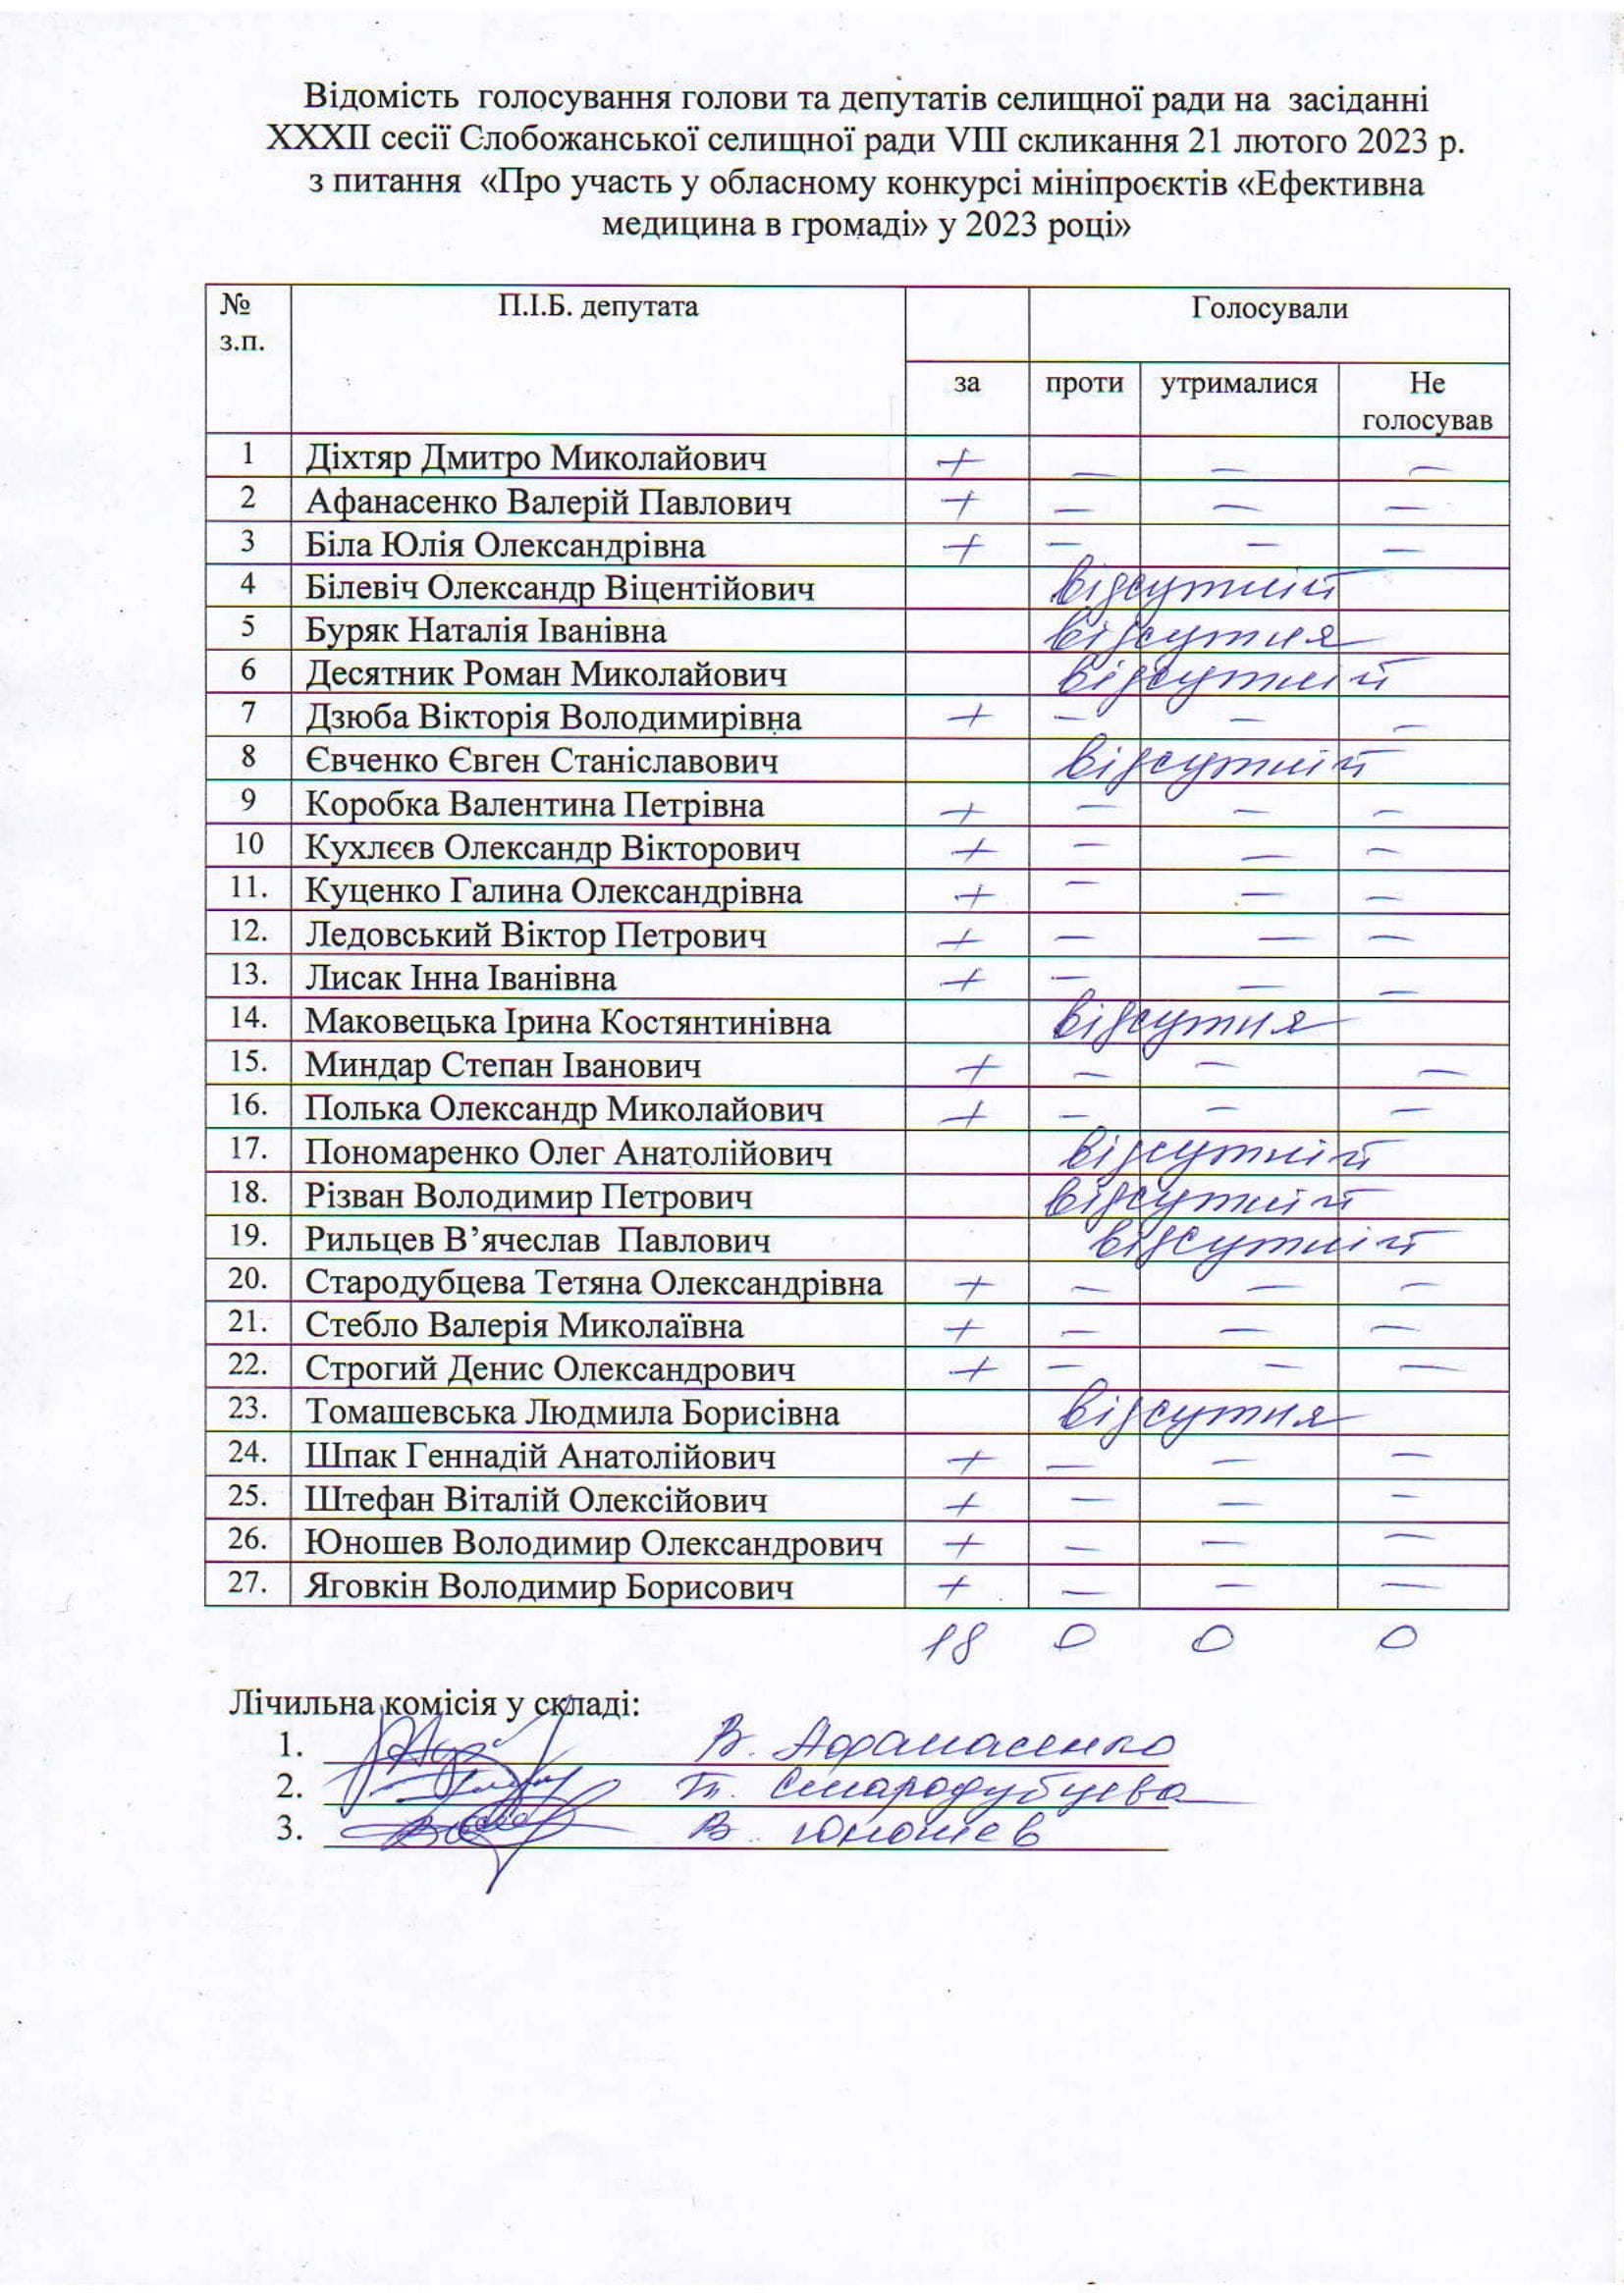 Відомість голосування голови та депутатів селищної ради на засіданні
XXXII сесії Слобожанської селищної ради VIII скликання 21 лютого 2023 р.
з питання «Про участь у обласному конкурсі мініпроєктів «Ефективна
медицина в громаді» у 2023 році»
№ з.п. П.І.Б. депутата Голосували
за проти утрималися Не голосував
1 Діхтяр Дмитро Миколайович + — — —
2 Афанасенко Валерій Павлович + — — —
3 Біла Юлія Олександрівна + — — —
4 Білевіч Олександр Віцентійович відсутній
5 Буряк Наталія Іванівна відсутня
6 Десятник Роман Миколайович відсутній
7 Дзюба Вікторія Володимирівна + — — —
8 Євченко Євген Станіславович відсутній
9 Коробка Валентина Петрівна + — — —
10 Кухлєєв Олександр Вікторович + — — —
11. Куценко Галина Олександрівна + — — —
12. Ледовський Віктор Петрович + — — —
13. Лисак Інна Іванівна + — — —
14. Маковецька Ірина Костянтинівна відсутня
15. Миндар Степан Іванович + — — —
16. Полька Олександр Миколайович + — — —
17. Пономаренко Олег Анатолійович відсутній
18. Різван Володимир Петрович відсутній
19. Рильцев В’ячеслав Павлович відсутній
20. Стародубцева Тетяна Олександрівна + — — —
21. Стебло Валерія Миколаївна + — — —
22. Строгий Денис Олександрович + — — —
23. Томашевська Людмила Борисівна відсутня
24. Шпак Геннадій Анатолійович + — — —
25. Штефан Віталій Олексійович + — — —
26. Юношев Володимир Олександрович + — — —
27. Яговкін Володимир Борисович + — — —
18 0 0 0
Лічильна комісія у складі:
1. В. Афанасенко
2. Т. Стародубцева
3. В. Юношев